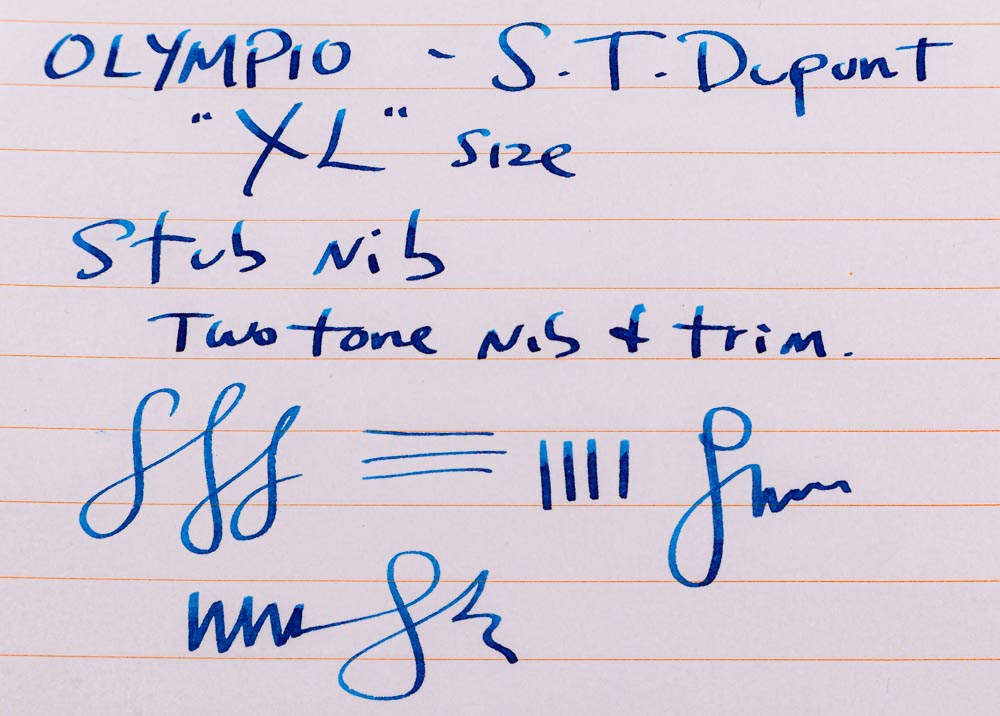 OLYMPIO - S.T. Dupont
"XL" size
Stub Nib
Two tone Nib & trim.